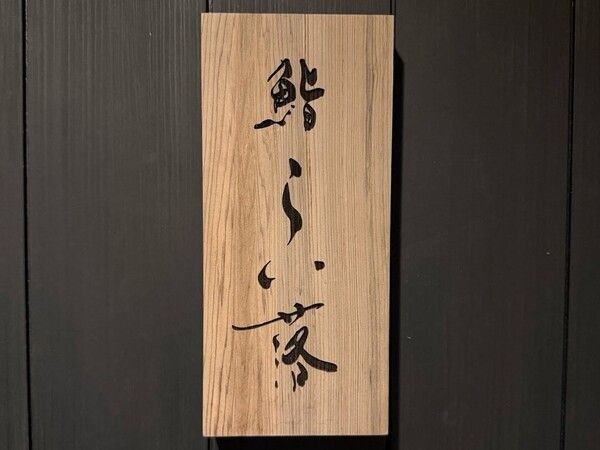 鮨らい落